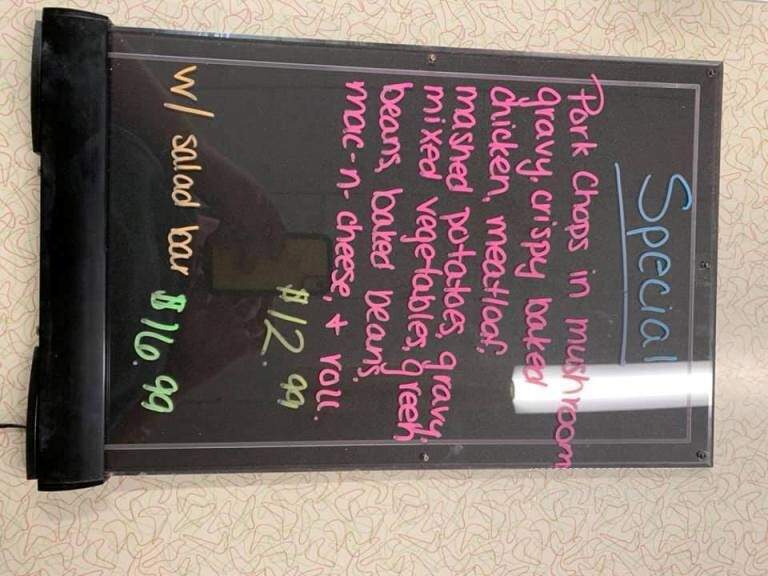 Special
Pork Chops in mushroom
gravy, crispy baked
chicken, meatloaf,
mashed potatoes, gravy,
mixed vegetables, green
beans, baked beans,
mac-n-cheese, + roll.
$12.99
w/ salad bar $16.99